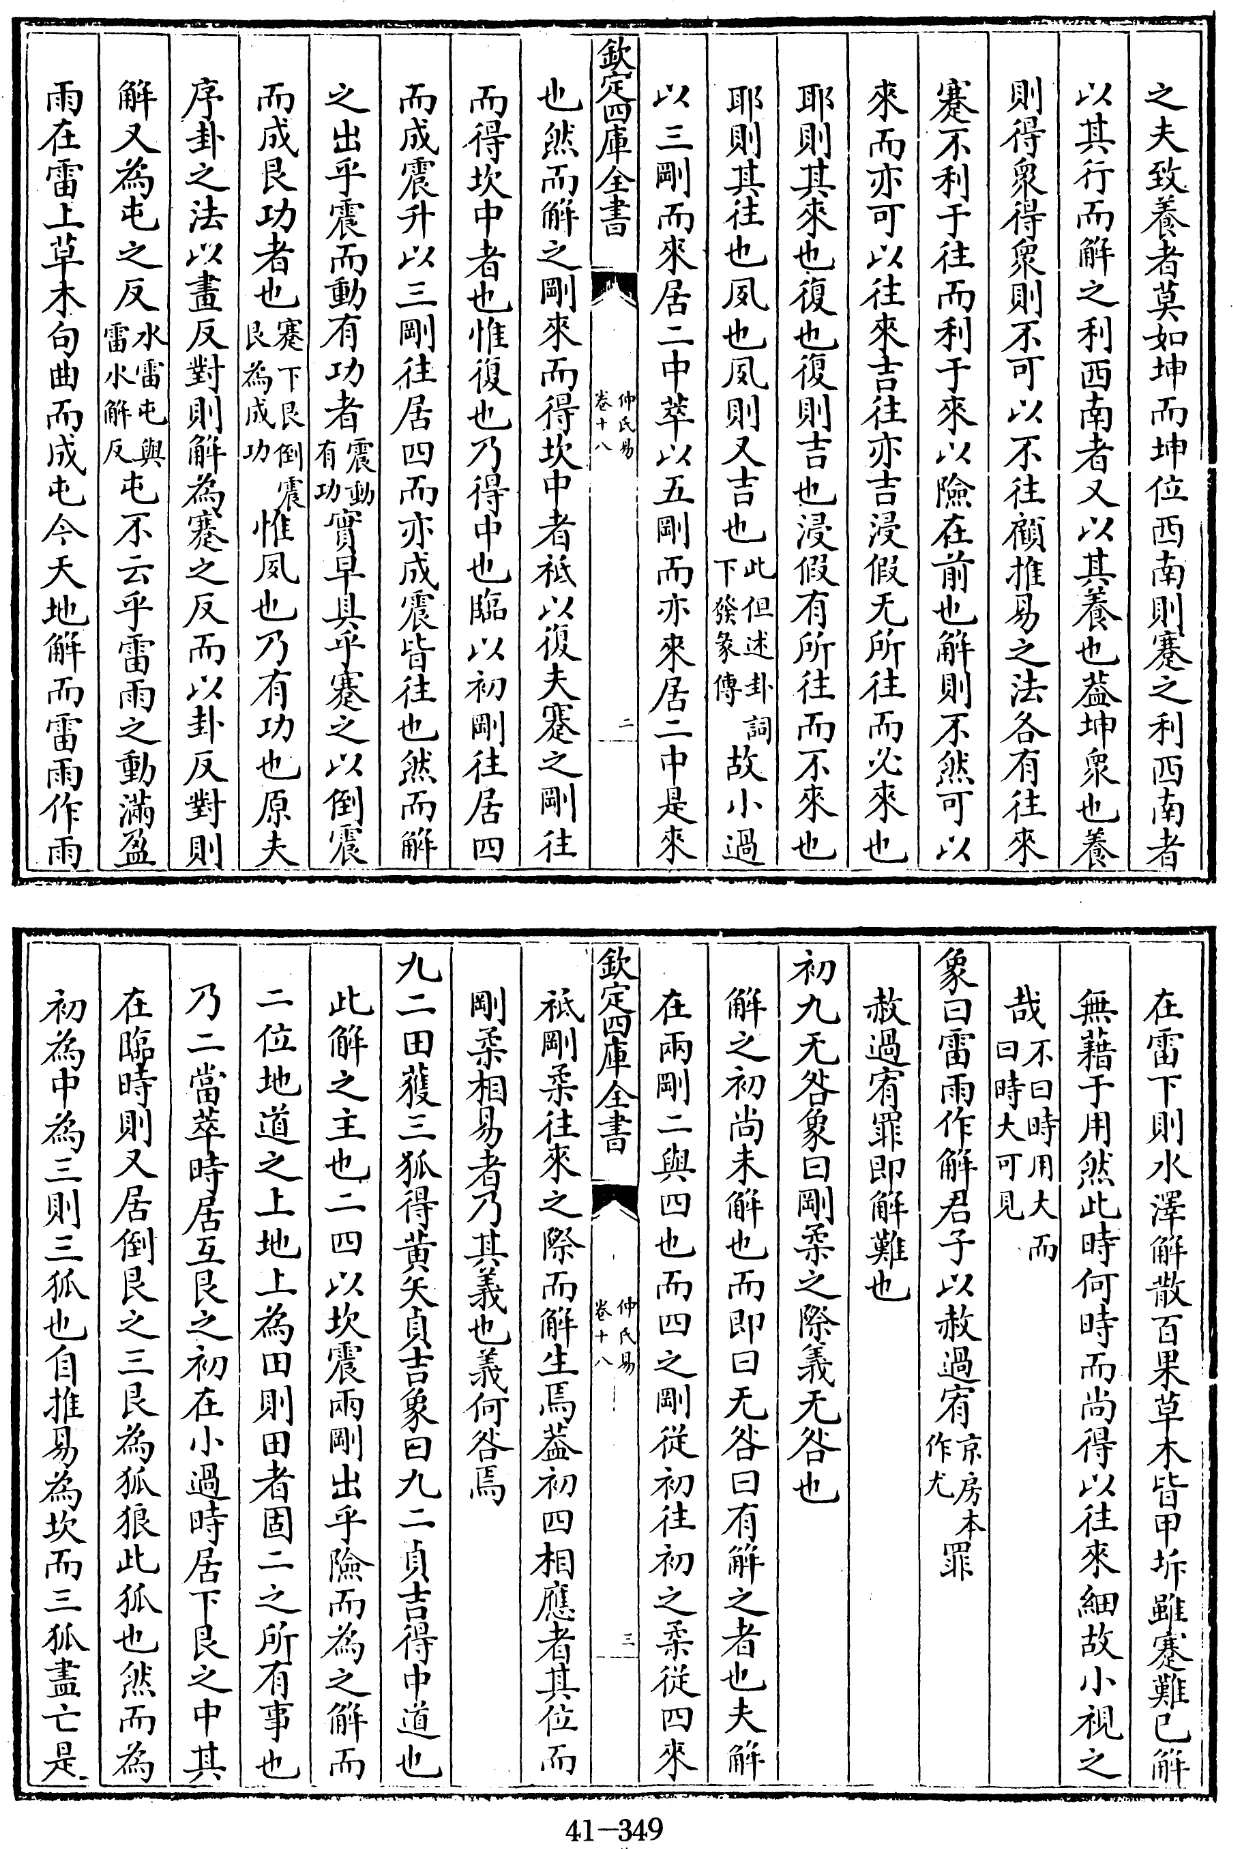 之夫致養者莫如坤而坤位西南則蹇之利西南者
以其行而解之利西南者又以其養也葢坤衆也養
則得衆得衆則不可以不往顧推易之法各有往來
蹇不利于往而利于來以險在前也解則不然可以
來而亦可以往來吉往亦吉浸假无所往而必來也
耶則其來也復也復則吉也浸假有所往而不來也
耶則其往也夙也夙則又吉也此但述卦詞下發彖傳故小過
以三剛而來居二中萃以五剛而亦來居二中是來
欽定四庫全書
仲氏易
卷十八
二
也然而解之剛來而得坎中者祗以復夫蹇之剛往
而得坎中者也惟復也乃得中也臨以初剛往居四
而成震升以三剛往居四而亦成震皆往也然而解
之出乎震而動有功者震動有功實早具乎蹇之以倒震
而成艮功者也蹇下艮倒震艮為成功惟夙也乃有功也原夫
序卦之法以畫反對則解為蹇之反而以卦反對則
解又為屯之反水雷屯與雷水解反屯不云乎雷雨之動滿盈
雨在雷上草木句曲而成屯今天地解而雷雨作雨
在雷下則水澤解散百果草木皆甲坼雖蹇難已解
無藉于用然此時何時而尚得以往來細故小視之
哉不曰時用大而曰時大可見
象曰雷雨作解君子以赦過宥京房本作尤罪
赦過宥罪即解難也
初九无咎象曰剛柔之際義无咎也
解之初尚未解也而即曰无咎曰有解之者也夫解
在兩剛二與四也而四之剛從初往初之柔從四來
欽定四庫全書
仲氏易
卷十八
三
祗剛柔往來之際而解生焉葢初四相應者其位而
剛柔相易者乃其義也義何咎焉
九二田獲三狐得黄矢貞吉象曰九二貞吉得中道也
此解之主也二四以坎震兩剛出乎險而為之解而
二位地道之上地上為田則田者固二之所有事也
乃二當萃時居互艮之初在小過時居下艮之中其
在臨時則又居倒艮之三艮為狐狼此狐也然而為
初為中為三則三狐也自推易為坎而三狐盡亡是
41—349